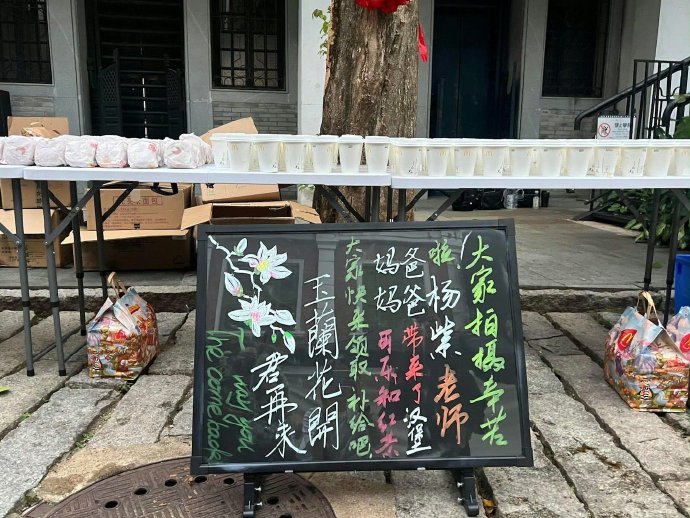 大家拍摄辛苦
啦,杨紫老师
爸爸带来了汉堡
妈妈可乐和红茶
大家快来领取补给吧
玉蘭花開
君再来
I may you
he come back